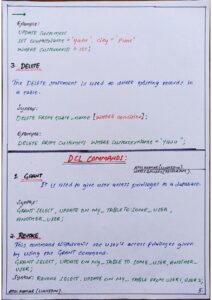 Example:
UPDATE Customers
SET ContactName = 'yadu', City = 'Pune'
WHERE CustomerID = 101;
3. DELETE
The DELETE statement is used to delete existing records in
a table.
Syntax:
DELETE FROM table_name [WHERE condition];
Example:
DELETE FROM Customers WHERE CustomerName = 'yadu';
DCL COMMANDS:
1. GRANT
It is used to give user access privileges to a database.
Syntax:
GRANT SELECT, UPDATE ON MY_TABLE TO SOME_USER,
ANOTHER_USER;
2. REVOKE
This command withdraws the user's access privileges given
by using the GRANT command.
GRANT SELECT, UPDATE ON MY_TABLE TO SOME_USER, ANOTHER_
USER;
Syntax: REVOKE SELECT, UPDATE ON MY_TABLE FROM USER1, USER2;
(LINKEDIN)
5.